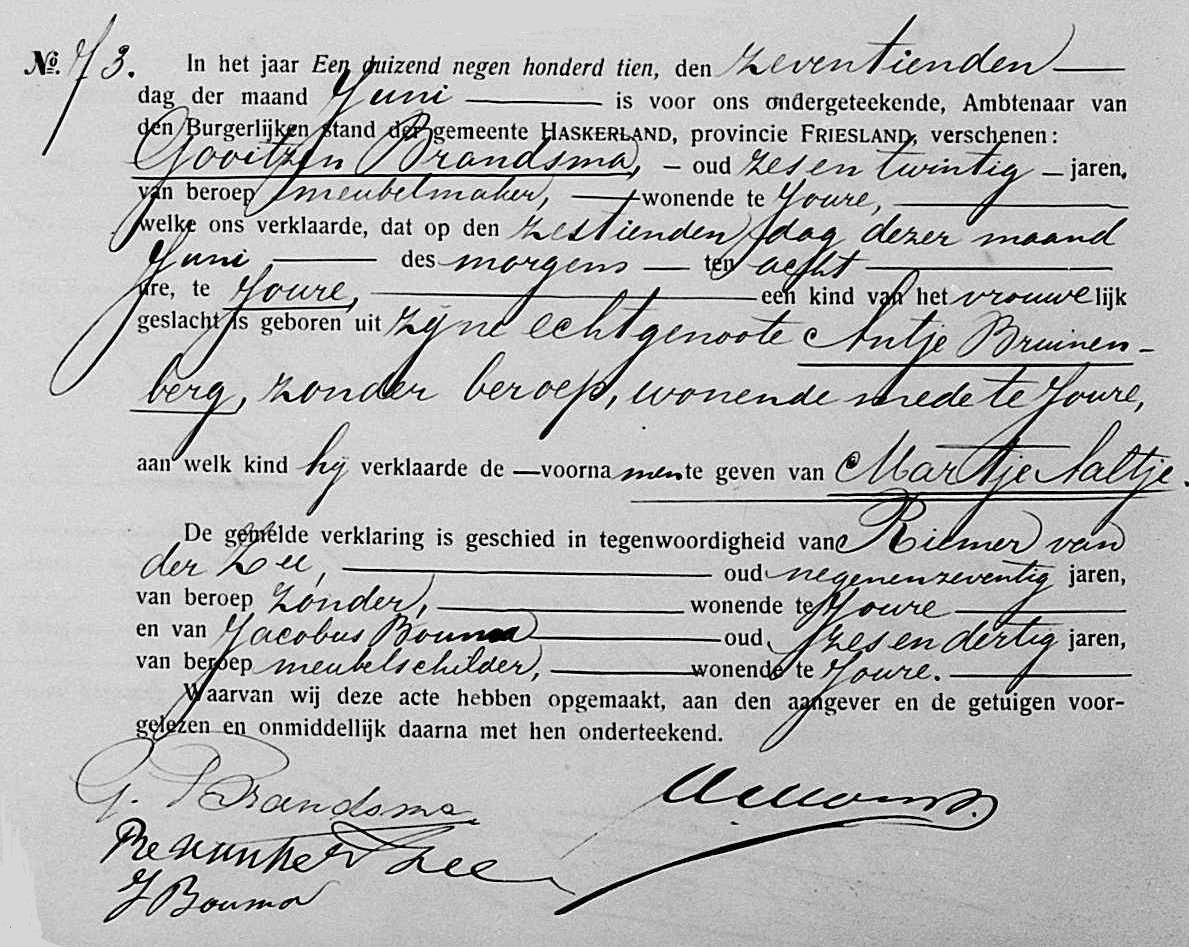 No. 73. In het jaar Een duizend negen honderd tien, den zeventienden
dag der maand Juni is voor ons ondergeteekende, Ambtenaar van
den Burgerlijken stand der gemeente HASKERLAND, provincie FRIESLAND, verschenen:
Gooitzen Brandsma, – oud zes en twintig – jaren,
van beroep meubelmaker, wonende te Joure,
welke ons verklaarde, dat op den zestienden dag dezer maand
Juni des morgens ten acht
ure, te Joure, een kind van het vrouwelijk
geslacht is geboren uit zijne echtgenoote Antje Bruinen-
berg, zonder beroep, wonende mede te Joure,
aan welk kind hij verklaarde de voornamen te geven van Martje Aaltje.
De gemelde verklaring is geschied in tegenwoordigheid van Riemer van
der Zee, oud negenenzeventig jaren,
van beroep zonder, wonende te Joure
en van Jacobus Bouma oud zes en dertig jaren,
van beroep meubelschilder, wonende te Joure.
Waarvan wij deze acte hebben opgemaakt, aan den aangever en de getuigen voor-
gelezen en onmiddellijk daarna met hen onderteekend.
G. Brandsma
Zee
J Bouma